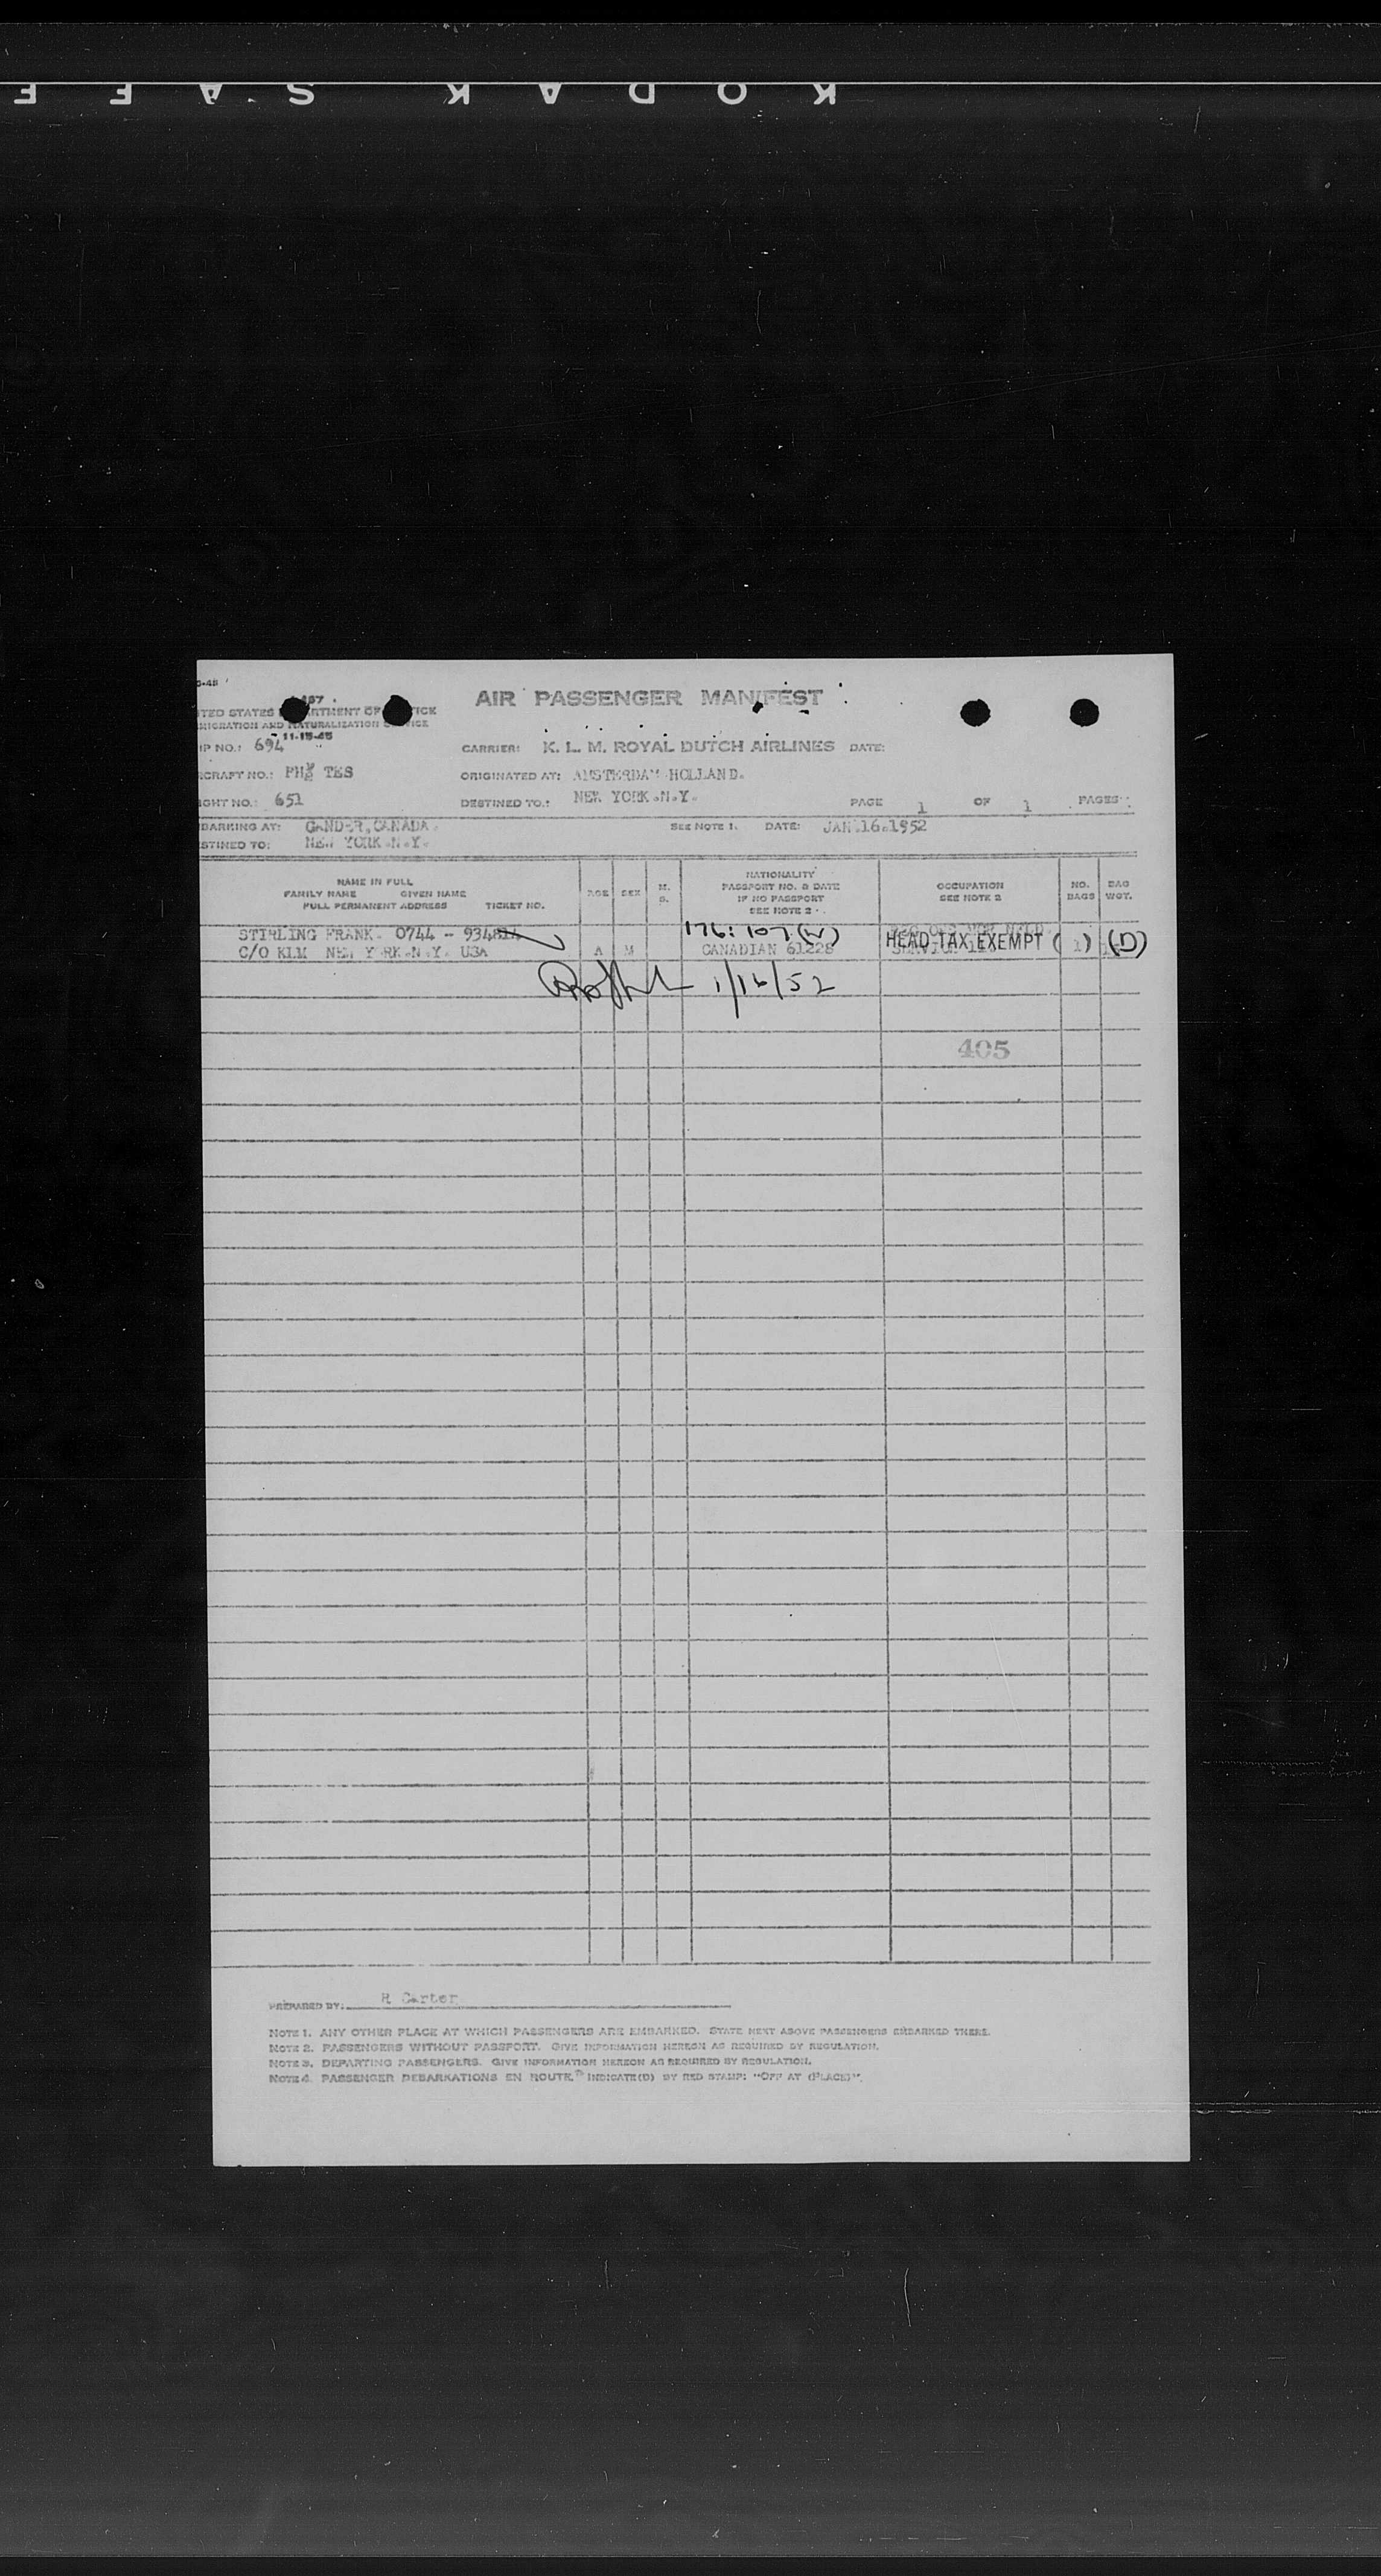 KODAK SAFE
AIR PASSENGER MANIFEST
11-15-45
IP NO.: 694
CARRIER: K. L. M. ROYAL DUTCH AIRLINES DATE:
CRAFT NO.: PH TES
ORIGINATED AT: AMSTERDAM HOLLAND.
GHT NO.: 651
DESTINED TO.: NEW YORK.N.Y.
PAGE 1 OF 1 PAGES
BARKING AT: GANDER,CANADA.
SEE NOTE 1. DATE: JAN.16.1952
STINED TO: NEW YORK.N.Y.
NAME IN FULL
FAMILY NAME GIVEN NAME
FULL PERMANENT ADDRESS TICKET NO.
AGE SEX M. S.
NATIONALITY
PASSPORT NO. & DATE
IF NO PASSPORT
SEE NOTE 2
OCCUPATION
SEE NOTE 2
NO. BAGS
BAG WGT.
STIRLING FRANK. 0744 - 934
176: 107 (W)
C/O KLM NEW YORK.N.Y. USA A M CANADIAN 61228
HEAD TAX EXEMPT ( 1 ) (D)
1/16/52
405
PREPARED BY: R Carter
NOTE 1. ANY OTHER PLACE AT WHICH PASSENGERS ARE EMBARKED. STATE NEXT ABOVE PASSENGERS EMBARKED THERE.
NOTE 2. PASSENGERS WITHOUT PASSPORT. GIVE INFORMATION HEREON AS REQUIRED BY REGULATION.
NOTE 3. DEPARTING PASSENGERS. GIVE INFORMATION HEREON AS REQUIRED BY REGULATION.
NOTE 4. PASSENGER DEBARKATIONS EN ROUTE. INDICATE(D) BY RED STAMP: "OFF AT (PLACE)".